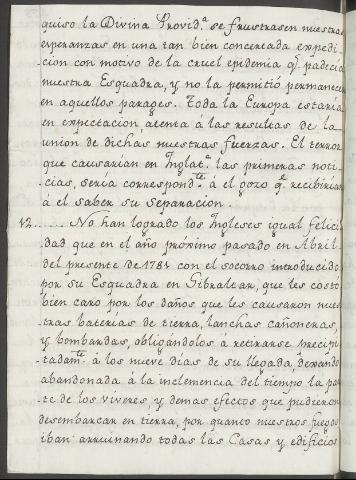 quiso la Divina Provid.ª se frustrasen nuestras
esperanzas en una tan bien concertada expedi
cion con motivo de la cruel epidemia q.e padecia
nuestra Esquadra, y no la permitió permanecer
en aquellos parages. Toda la Europa estaria
en expectacion, atenta á las resultas de la
union de dichas nuestras fuerzas. El terror
que causarian en Inglat.ª las primeras noti
cias, seria correspond.te á el gozo q.e recibirian
á el saber su separacion.
12...... No han logrado los Ingleses igual felici
dad que en el año próximo pasado en Abril
del presente de 1781 con el socorro introducido
por su Esquadra en Gibraltar, que les costó
bien caro por los daños que les causaron nues
tras baterías de tierra, lanchas cañoneras,
y bombardas, obligandolos a retirarse precipi
tadam.te á los nueve dias de su llegada dexando
abandonada á la inclemencia del tiempo la par
te de los viveres, y demas efectos que pudieron
desembarcar en tierra, por quanto nuestros fuegos
iban arruinando todas las Casas y edificios